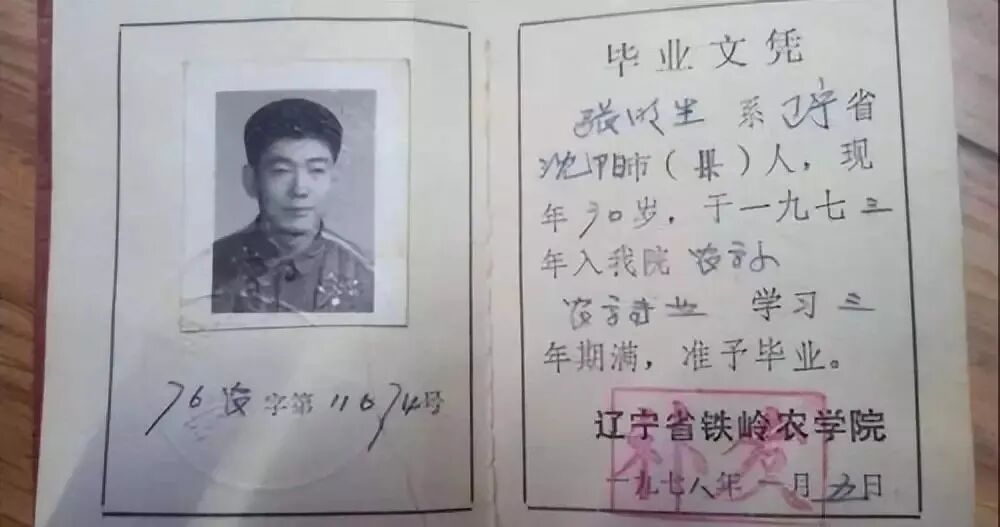 76农字第11674号
毕业文凭
张明生 系辽宁省
沈阳市(县)人,现
年30岁,于一九七三
年入我院 农
农 业 学习三
年期满,准予毕业。
辽宁省铁岭农学院
补发
一九七八年一月五日